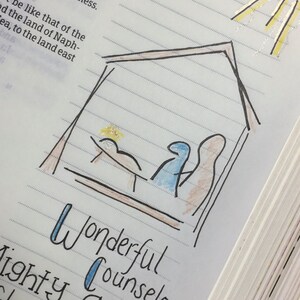 ness.
be like that of the
d the land of Naph-
ea, to the land east
Wonderful
Counselo
Mighty